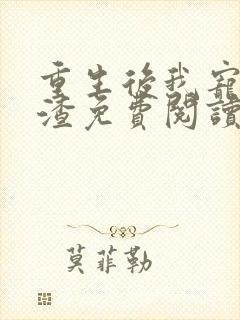 重生後我寵
渣免費閱讀
莫菲勒